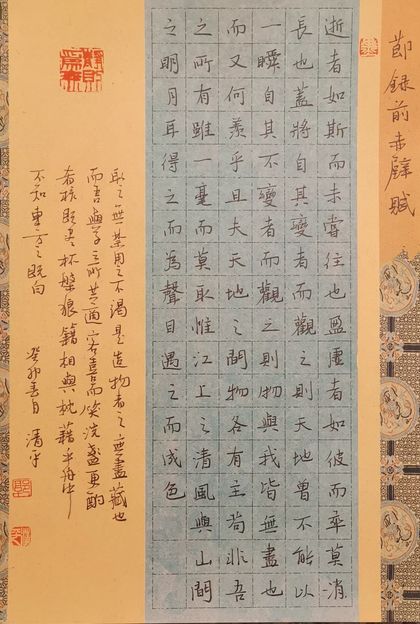 節錄前赤壁賦
逝者如斯而未嘗往也盈虛者如彼而卒莫消
長也蓋將自其變者而觀之則天地曾不能以
一瞬自其不變者而觀之則物與我皆無盡也
而又何羨乎且夫天地之間物各有主茍非吾
之所有雖一毫而莫取惟江上之清風與山間
之明月耳得之而為聲目遇之而成色
取之無禁用之不竭是造物者之無盡藏也
而吾與子之所共適客喜而笑洗盞更酌
肴核既盡杯盤狼籍相與枕藉乎舟中
不知東方之既白 癸卯春月 清平